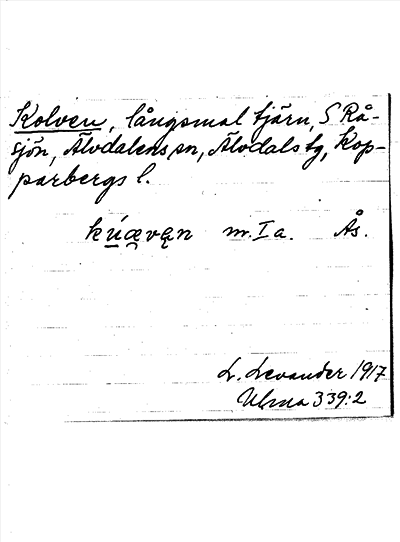 Kolven, långsmal tjärn, S Rå-
sjön, Älvdalens sn, Älvdals tg, Kop-
parbergs l.
kúævęn m. I a. Ås.
L. Levander 1917
Ulma 339:2